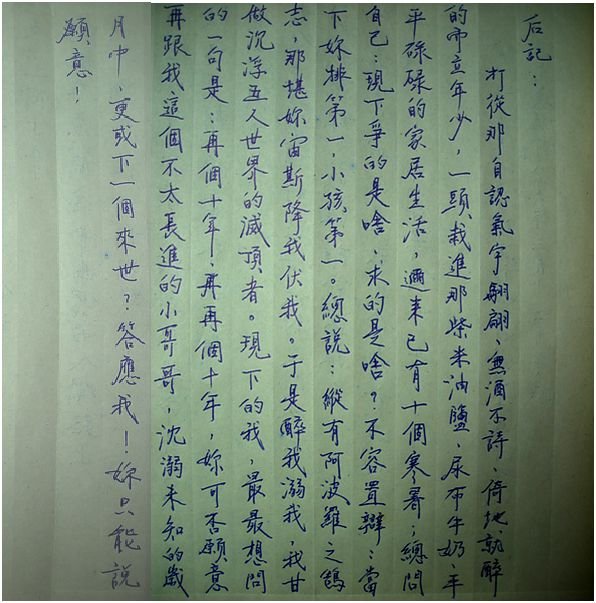 后記：
打從那自認氣宇翩翩、無酒不詩、倚地就醉
的帀立年少，一頭栽進那柴米油鹽、尿布牛奶、平
平碌碌的家居生活，邇來已有十個寒暑；總問
自己：現下爭的是啥、求的是啥？不容置辯：當
下妳排第一，小孩第一。總說：縱有阿波羅之鵠
志，那堪妳宙斯降我伏我。于是醉我溺我，我甘
做沉浮五人世界的滅頂者。現下的我，最最想問
的一句是：再個十年、再再個十年，妳可否願意
再跟我這個不太長進的小哥哥，沈溺未知的歲
月中，更或下一個來世？答應我！妳只能說
願意！